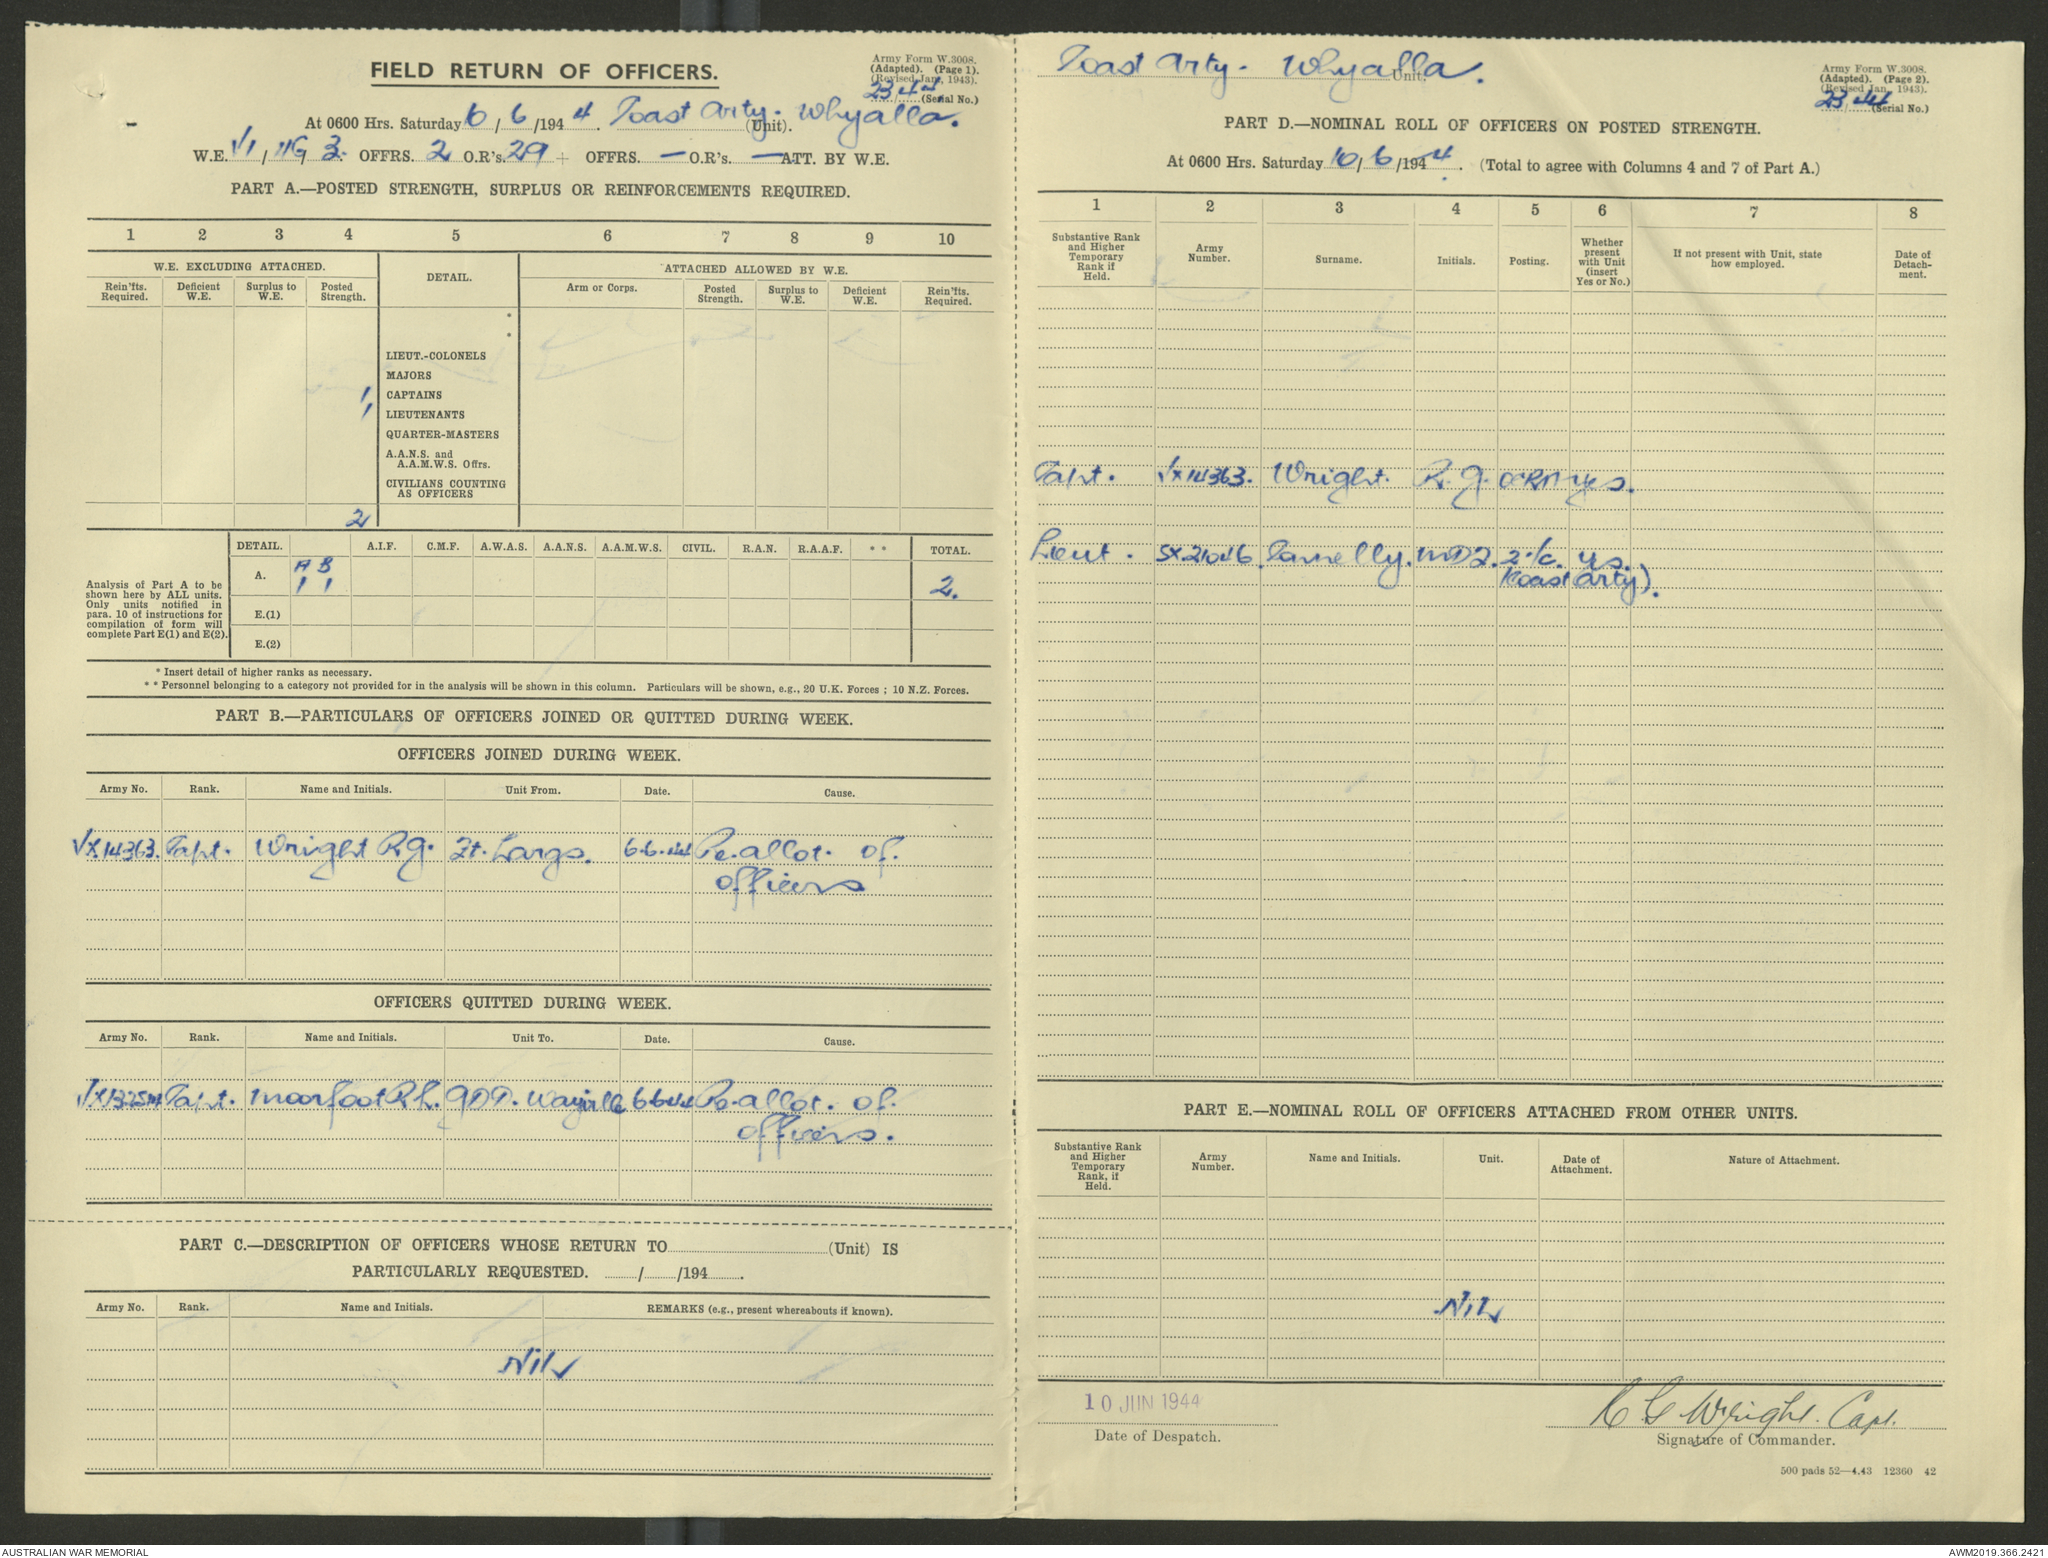 FIELD RETURN OF OFFICERS.
Army Form W.3008.
(Adapted). (Page 1).
(Revised Jan., 1943).
23/44 (Serial No.)
At 0600 Hrs. Saturday 10/6/1944. Coast Arty. Whyalla. (Unit).
W.E. VI / 11G / 3. OFFRS. 2 O.R's. 29 + OFFRS. — O.R's. — ATT. BY W.E.
PART A.—POSTED STRENGTH, SURPLUS OR REINFORCEMENTS REQUIRED.
1 2 3 4 5 6 7 8 9 10
W.E. EXCLUDING ATTACHED. DETAIL. ATTACHED ALLOWED BY W.E.
Rein'fts. Required. Deficient W.E. Surplus to W.E. Posted Strength. Arm or Corps. Posted Strength. Surplus to W.E. Deficient W.E. Rein'fts. Required.
*
*
LIEUT.-COLONELS
MAJORS
1 CAPTAINS
1 LIEUTENANTS
QUARTER-MASTERS
A.A.N.S. and
A.A.M.W.S. Offrs.
CIVILIANS COUNTING
AS OFFICERS
2
DETAIL. A.I.F. C.M.F. A.W.A.S. A.A.N.S. A.A.M.W.S. CIVIL. R.A.N. R.A.A.F. * * TOTAL.
Analysis of Part A to be
shown here by ALL units.
Only units notified in
para. 10 of instructions for
compilation of form will
complete Part E(1) and E(2).
A B
A. 1 1 2.
E.(1)
E.(2)
* Insert detail of higher ranks as necessary.
* * Personnel belonging to a category not provided for in the analysis will be shown in this column. Particulars will be shown, e.g., 20 U.K. Forces ; 10 N.Z. Forces.
PART B.—PARTICULARS OF OFFICERS JOINED OR QUITTED DURING WEEK.
OFFICERS JOINED DURING WEEK.
Army No. Rank. Name and Initials. Unit From. Date. Cause.
VX14363. Capt. Wright R.G. Ft. Largs. 6.6.44 Re.allot. of
officers
OFFICERS QUITTED DURING WEEK.
Army No. Rank. Name and Initials. Unit To. Date. Cause.
Capt. Moorfoot R.L. GDD. Wayville 6.6.44 Re.allot. of
officers.
PART C.—DESCRIPTION OF OFFICERS WHOSE RETURN TO (Unit) IS
PARTICULARLY REQUESTED. / /194 .
Army No. Rank. Name and Initials. REMARKS (e.g., present whereabouts if known).
NIL
Coast Arty. Whyalla. Unit.
Army Form W.3008.
(Adapted). (Page 2).
(Revised Jan., 1943).
23/44 (Serial No.)
PART D.—NOMINAL ROLL OF OFFICERS ON POSTED STRENGTH.
At 0600 Hrs. Saturday 10/6/1944. (Total to agree with Columns 4 and 7 of Part A.)
1 2 3 4 5 6 7 8
Substantive Rank and Higher Temporary Rank if Held. Army Number. Surname. Initials. Posting. Whether present with Unit (insert Yes or No.) If not present with Unit, state how employed. Date of Detachment.
Capt. VX14363. Wright. R.G. yes.
Lieut. 2 i/c. yes.
(Coast Arty).
PART E.—NOMINAL ROLL OF OFFICERS ATTACHED FROM OTHER UNITS.
Substantive Rank and Higher Temporary Rank, if Held. Army Number. Name and Initials. Unit. Date of Attachment. Nature of Attachment.
NIL
10 JUN 1944
Date of Despatch.
R G Wright. Capt.
Signature of Commander.
500 pads 52—4.43 12360 42
AUSTRALIAN WAR MEMORIAL
AWM2019.366.2421